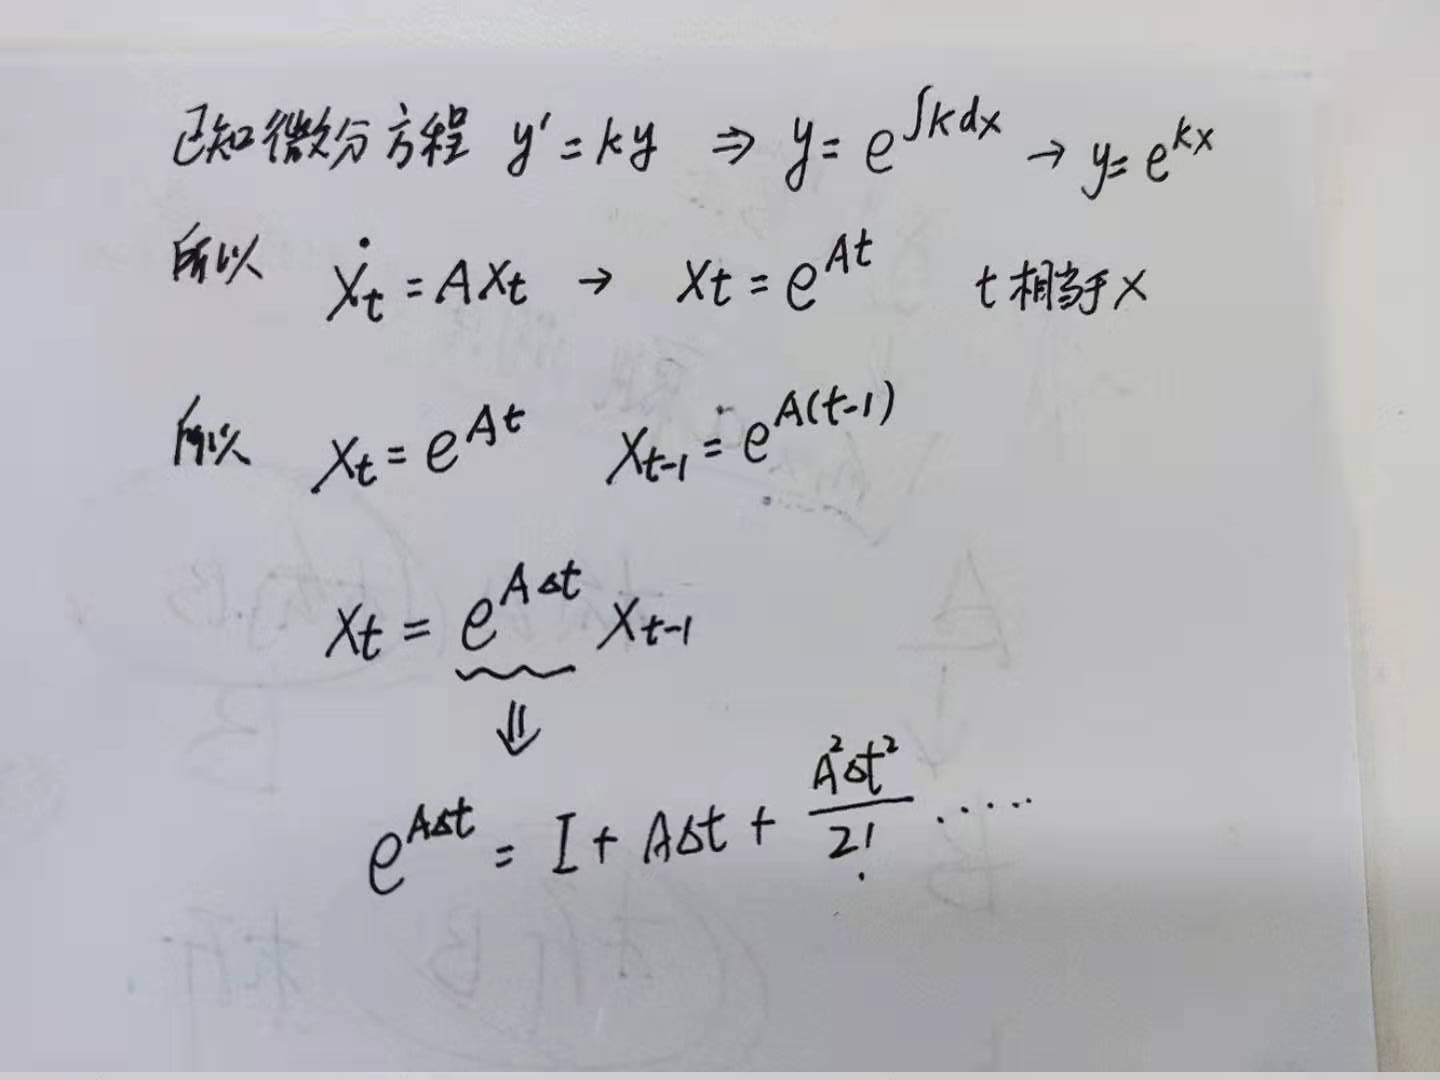 已知微分方程 y' = ky ⇒ y = e^{∫kdx} → y = e^{kx}
所以 Ẋt = AXt → Xt = e^{At} t相当于X
所以 Xt = e^{At} Xt-1 = e^{A(t-1)}
Xt = e^{AΔt} Xt-1
⇓
e^{AΔt} = I + AΔt + A²Δt²/2! ......